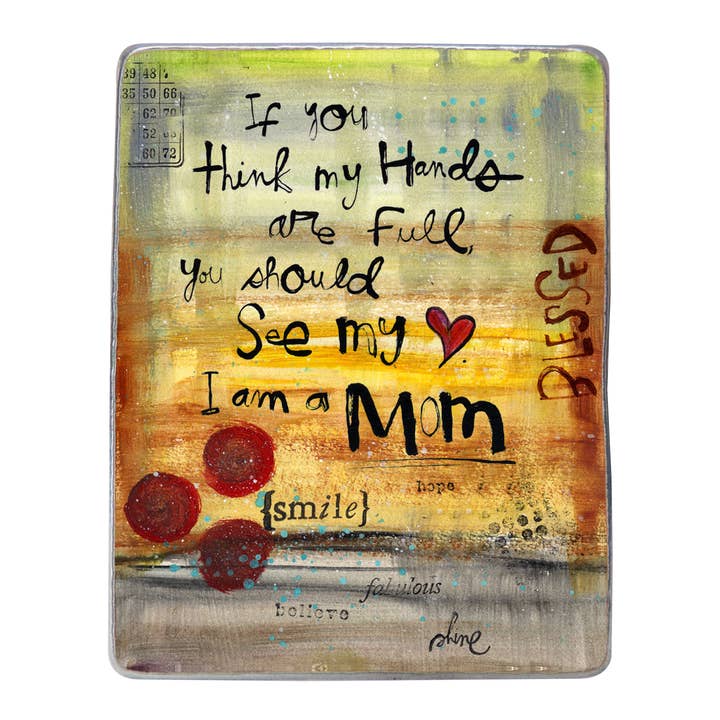 39 48
35 50 66
62 70
52
60 72
If you
think my Hands
are Full,
you should
See my
I am a Mom
BLESSED
hope
{smile}
fabulous
believe
shine